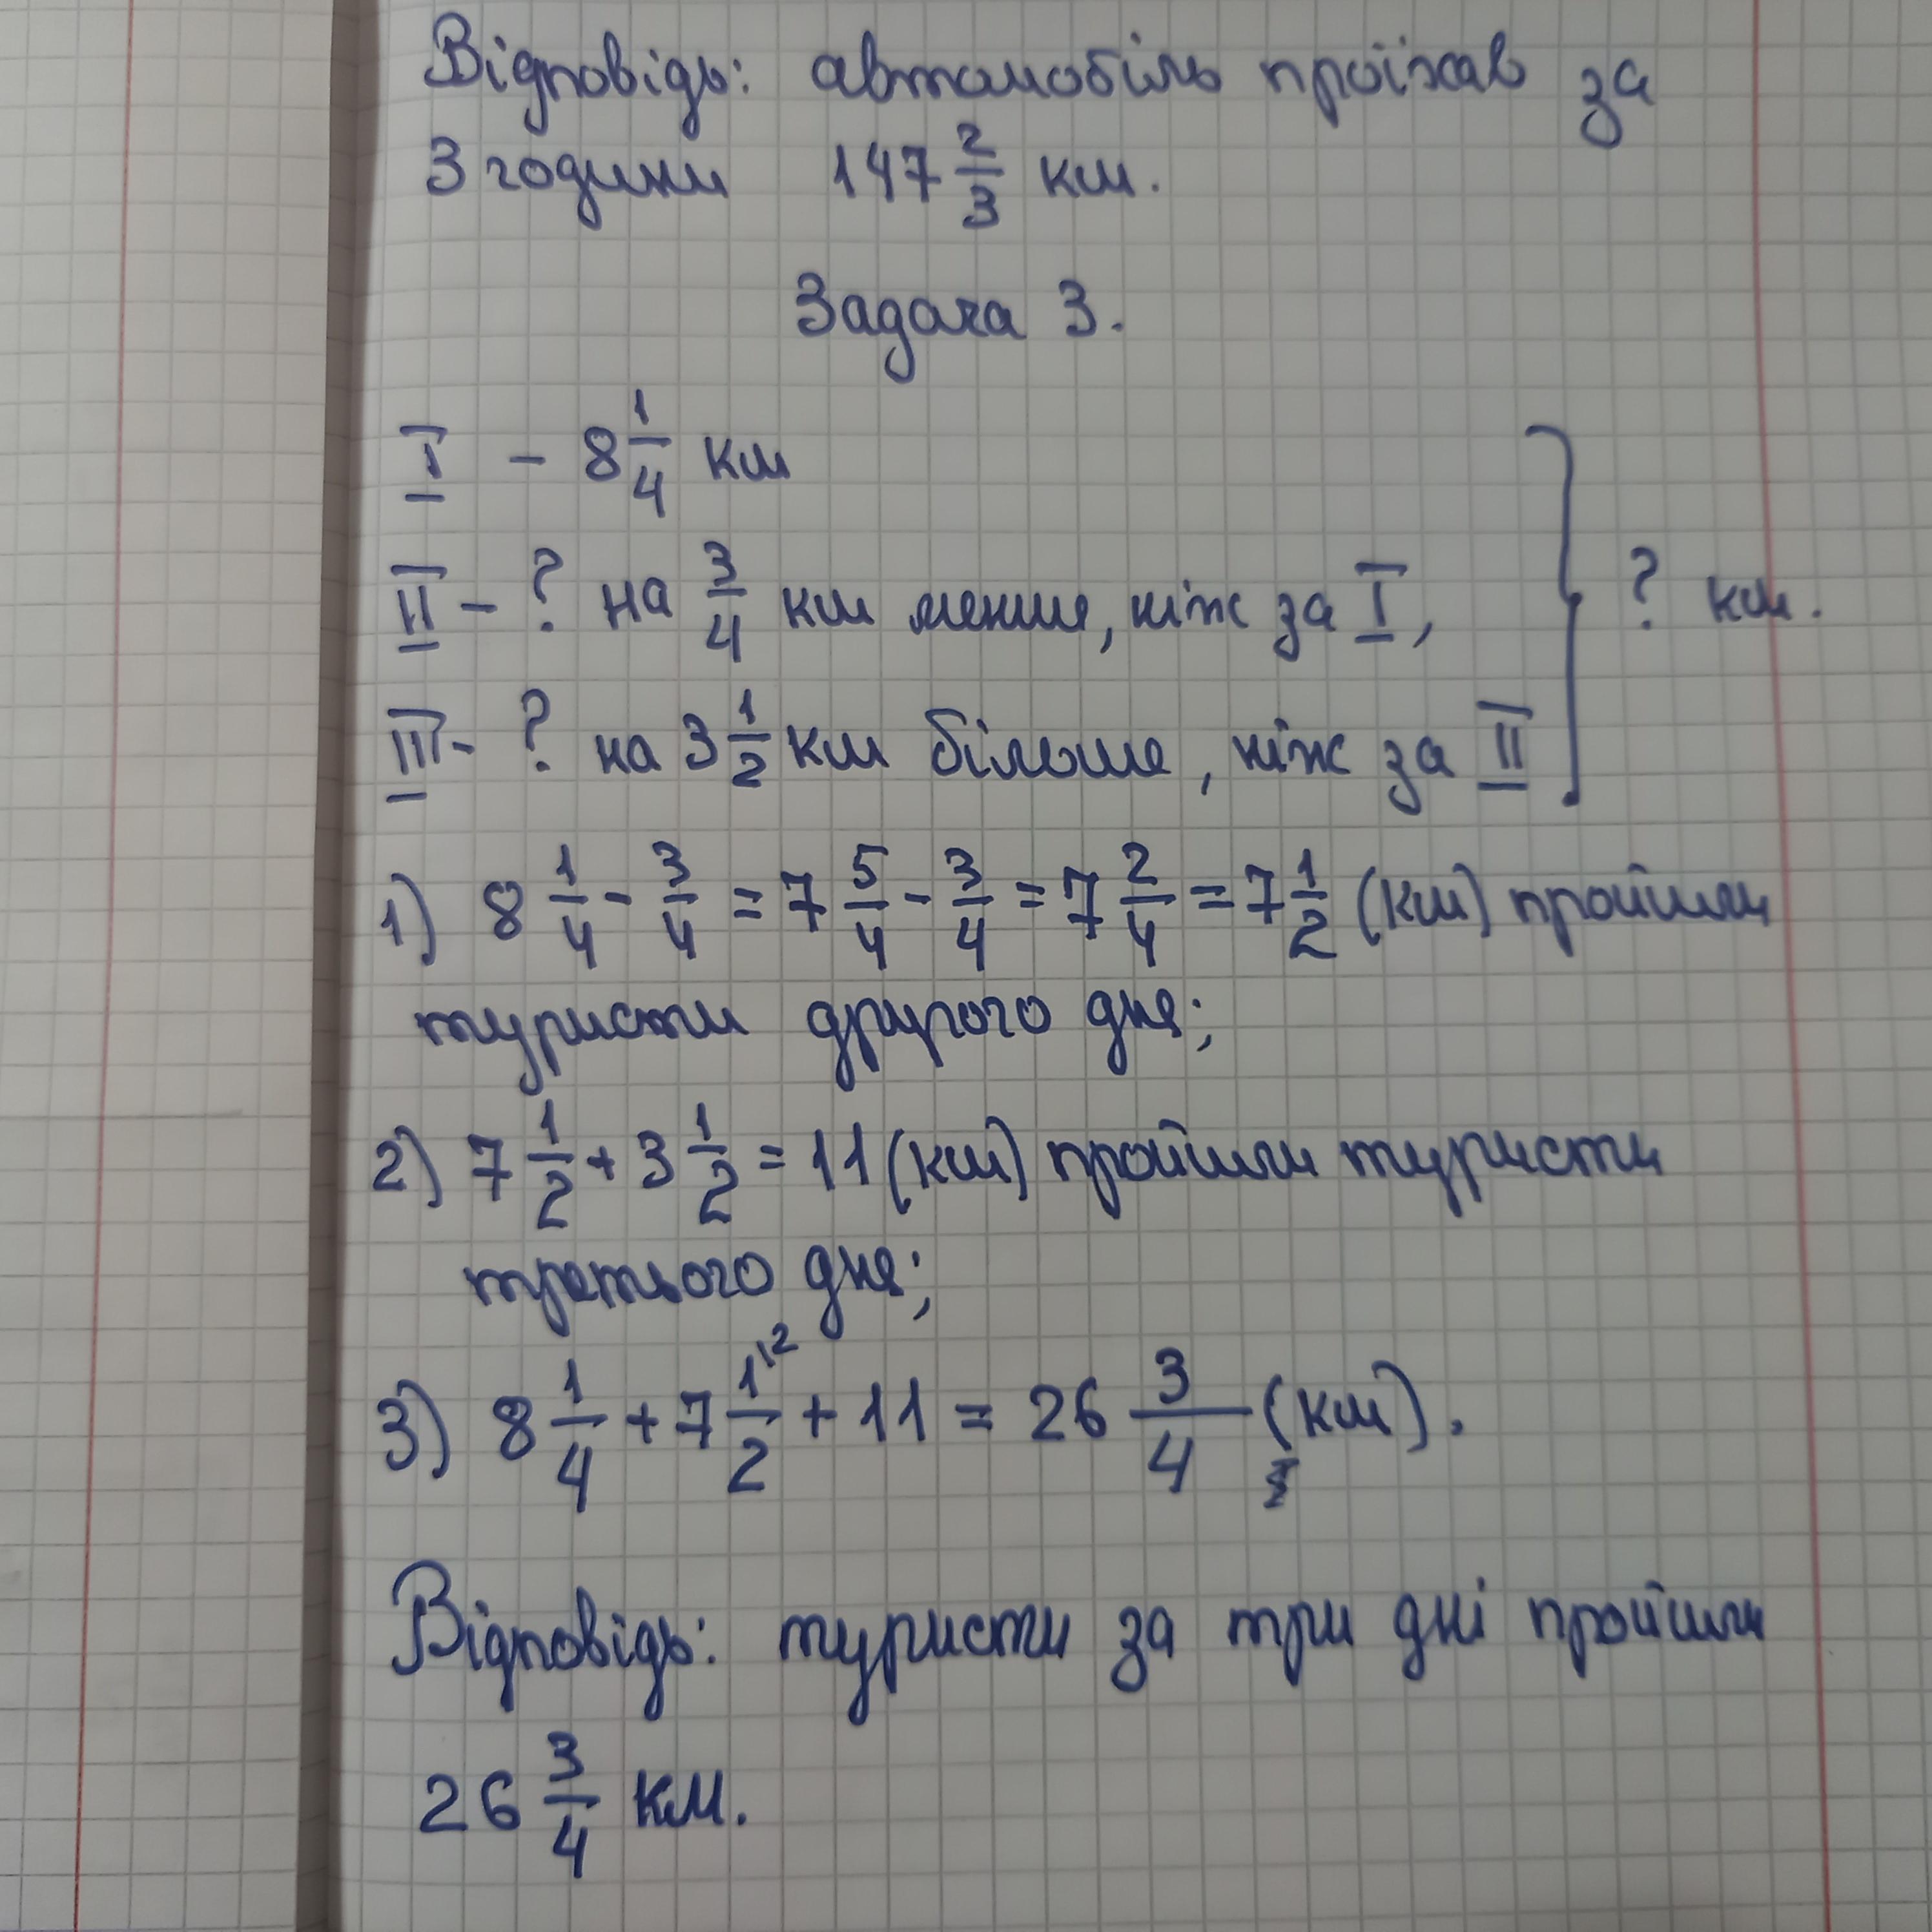 Відповідь: автомобіль проїхав за
3 години 147 2/3 км.
Задача 3.
I - 8 1/4 км
II - ? на 3/4 км менше, ніж за I, } ? км.
III - ? на 3 1/2 км більше, ніж за II
1) 8 1/4 - 3/4 = 7 5/4 - 3/4 = 7 2/4 = 7 1/2 (км) пройшли
туристи другого дня;
2) 7 1/2 + 3 1/2 = 11 (км) пройшли туристи
третього дня;
3) 8 1/4 + 7 1\2/2 + 11 = 26 3/4 (км).
Відповідь: туристи за три дні пройшли
26 3/4 км.